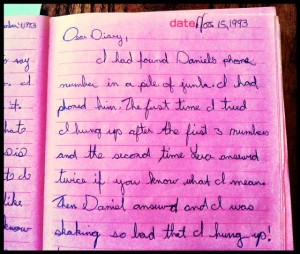 date Nov 15, 1993
Dear Diary,
I had found Daniel's phone
number in a pile of junk. I had
phoned him. The first time I tried
I hung up after the first 3 numbers
and the second time answerd
twice if you know what I mean.
Then Daniel answerd and I was
shaking so bad that I hung up!
1993
to say
I
hate
to do
like
know